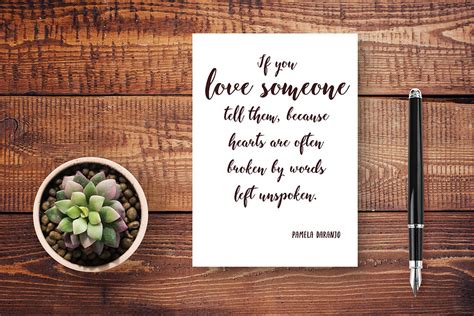 If you
love someone
tell them, because
hearts are often
broken by words
left unspoken.
PAMELA DARANJO